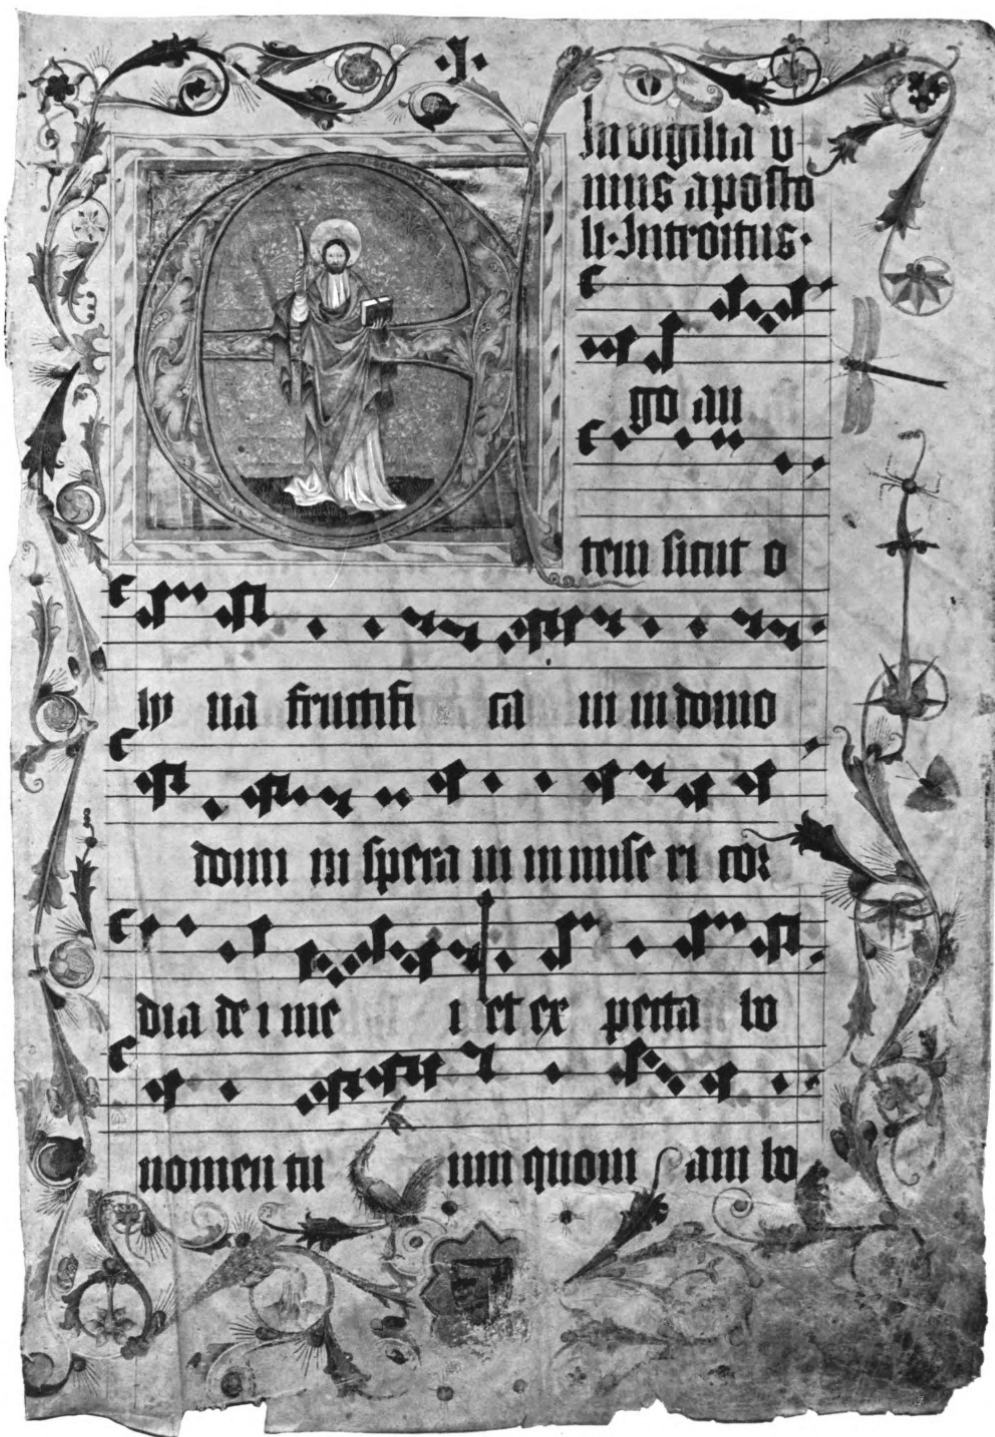 ·I·
In vigilia v
nius aposto
li·Introitus·
E
go au
tem sicut o
ly ua fructifi ca ui in domo
domi ni spera ui in mise ri cor
dia de i me i et ex pecta bo
nomen tu um quoni am bo